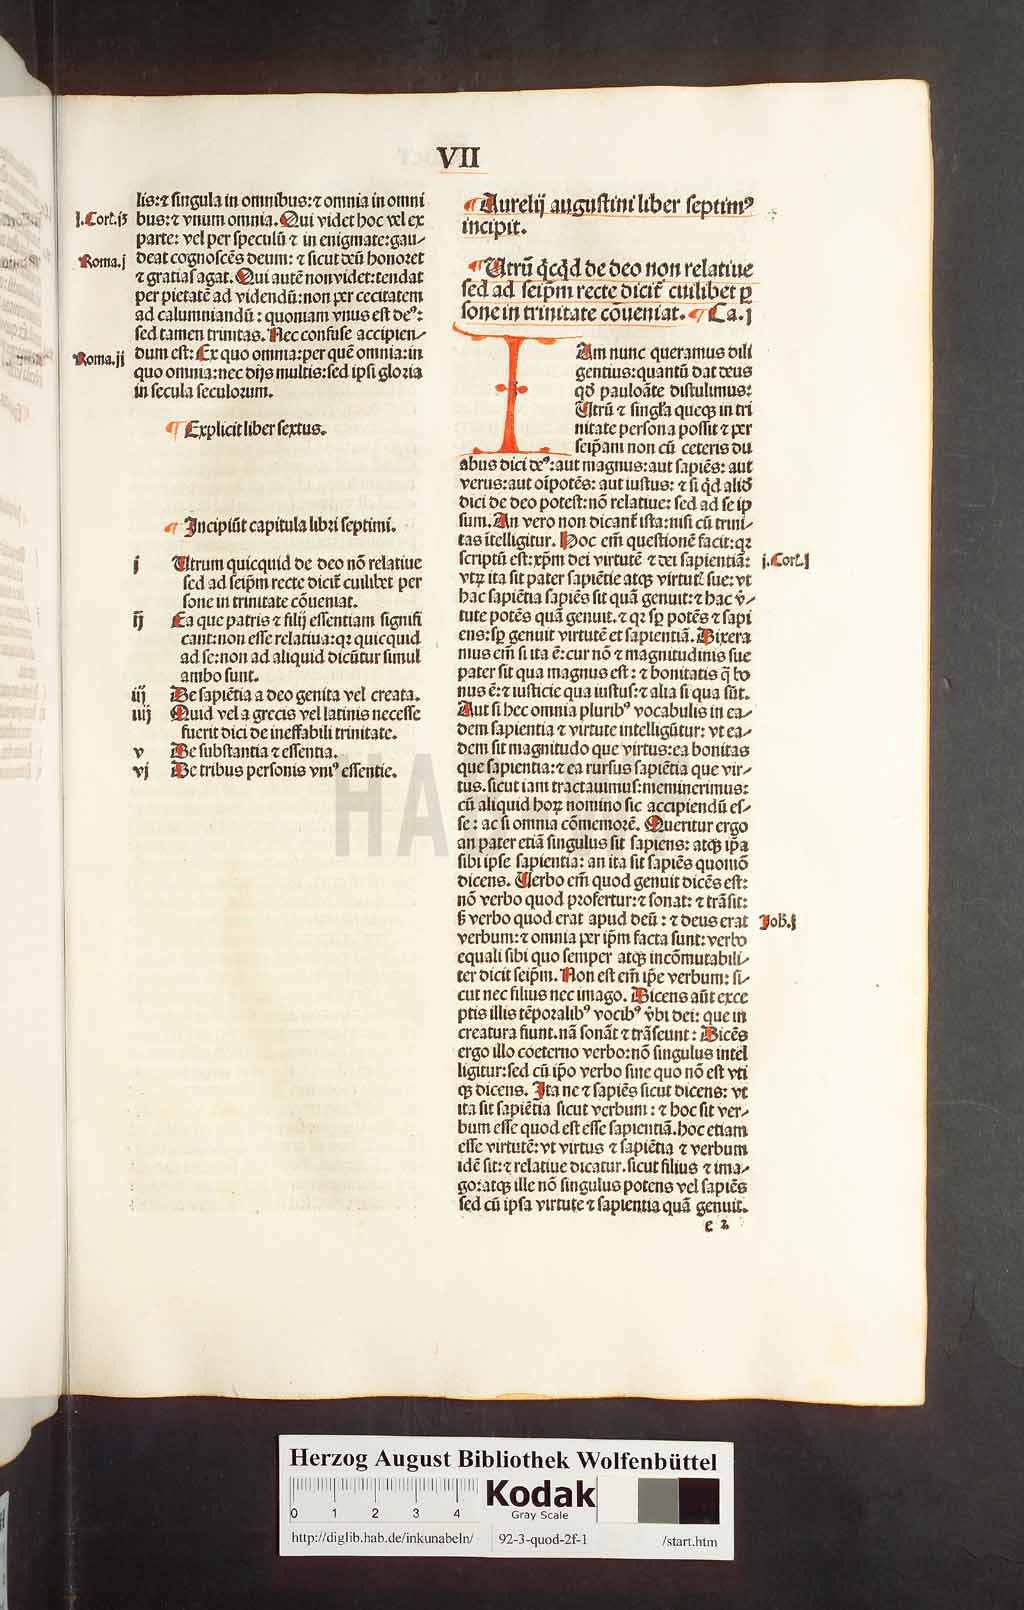 VII
lis:⁊ singula in omnibus:⁊ omnia in omni
j.Cort.iȝ
bus:⁊ vnum omnia. Qui videt hoc vel ex
parte: vel per speculū ⁊ in enigmate:gau-
Roma.j
deat cognoscēs deum: ⁊ sicut deū honoret
⁊ gratias agat. Qui autē non videt:tendat
per pietatē ad videndū:non per cecitatem
ad calumniandū: quoniam vnus est deꝰ:
sed tamen trinitas. Nec confuse accipien-
Roma.ij
dum est: Ex quo omnia:per quē omnia:in
quo omnia:nec dijs multis:sed ipsi gloria
in secula seculorum.
¶ Explicit liber sextus.
¶ Incipiūt capitula libri septimi.
j Utrum quicquid de deo nō relatiue
sed ad seip̄m recte dicit̄ cuilibet per
sone in trinitate cōueniat.
ij Ea que patris ⁊ filij essentiam signifi
cant:non esse relatiua:qꝛ quicquid
ad se:non ad aliquid dicūtur simul
ambo sunt.
iij De sapiētia a deo genita vel creata.
iiij Quid vel a grecis vel latinis necesse
fuerit dici de ineffabili trinitate.
v De substantia ⁊ essentia.
vj De tribus personis vniꝰ essentie.
¶ Aurelij augustini liber septimꝰ
incipit.
¶ Utrū q̇cq̇d de deo non relatiue
sed ad seip̄m recte dicit̄ cuilibet ꝑ
sone in trinitate cōueniat. ¶ Ca.j
I Am nunc queramus dili
gentius:quantū dat deus
qd̄ pauloāte distulimus:
Utrū ⁊ singl̄a queqꝫ in tri
nitate persona possit ⁊ per
seip̄am non cū ceteris du
abus dici deꝰ:aut magnus:aut sapiēs: aut
verus:aut oīpotēs: aut iustus: ⁊ si qd̄ aliud
dici de deo potest:nō relatiue: sed ad se ip
sum. An vero non dicant̄ ista:nisi cū trini-
tas ītelligitur. Hoc em̄ questionē facit:qꝛ
scriptū est:xp̄m dei virtutē ⁊ dei sapientiā:
j.Cort.j
vtꝝ ita sit pater sapiētie atqꝫ virtut̄ sue: vt
hac sapiētia sapiēs sit quā genuit:⁊ hac v̄-
tute potēs quā genuit. ⁊ qꝛ sp̄ potēs ⁊ sapi
ens:sp̄ genuit virtutē et sapientiā. Dixera
mus em̄ si ita ē:cur nō ⁊ magnitudinis sue
pater sit qua magnus est: ⁊ bonitatis q̄ bo
nus ē:⁊ iusticie qua iustus:⁊ alia si qua sūt.
Aut si hec omnia pluribꝰ vocabulis in ea-
dem sapientia ⁊ virtute intelligūtur: vt ea-
dem sit magnitudo que virtus:ea bonitas
que sapientia:⁊ ea rursus sapiētia que vir-
tus. sicut iam tractauimus:meminerimus:
cū aliquid hoꝝ nomino sic accipiendū es-
se: ac si omnia cōmemorē. Queritur ergo
an pater etiā singulus sit sapiens: atqꝫ ip̄a
sibi ipse sapientia: an ita sit sapiēs quomō
dicens. Uerbo em̄ quod genuit dicēs est:
nō verbo quod profertur:⁊ sonat: ⁊ trāsit:
ß verbo quod erat apud deū: ⁊ deus erat
Joh̄.j
verbum:⁊ omnia per ip̄m facta sunt: verbo
equali sibi quo semper atqꝫ incōmutabili-
ter dicit seip̄m. Non est em̄ ip̄e verbum: si-
cut nec filius nec imago. Dicens aūt exce
ptis illis tēporalibꝰ vocibꝰ v̄bi dei: que in
creatura fiunt.nā sonāt ⁊ trāseunt: Dicēs
ergo illo coeterno verbo:nō singulus intel
ligitur:sed cū ip̄o verbo sine quo nō est vti
qꝫ dicens. Ita ne ⁊ sapiēs sicut dicens: vt
ita sit sapiētia sicut verbum: ⁊ hoc sit ver-
bum esse quod est esse sapientiā.hoc etiam
esse virtutē: vt virtus ⁊ sapiētia ⁊ verbum
idē sit:⁊ relatiue dicatur.sicut filius ⁊ ima-
go:atqꝫ ille nō singulus potens vel sapiēs
sed cū ipsa virtute ⁊ sapientia quā genuit.
e 2
HAB
Herzog August Bibliothek Wolfenbüttel
0 1 2 3 4
Kodak
Gray Scale
http://diglib.hab.de/inkunabeln/ 92-3-quod-2f-1 /start.htm